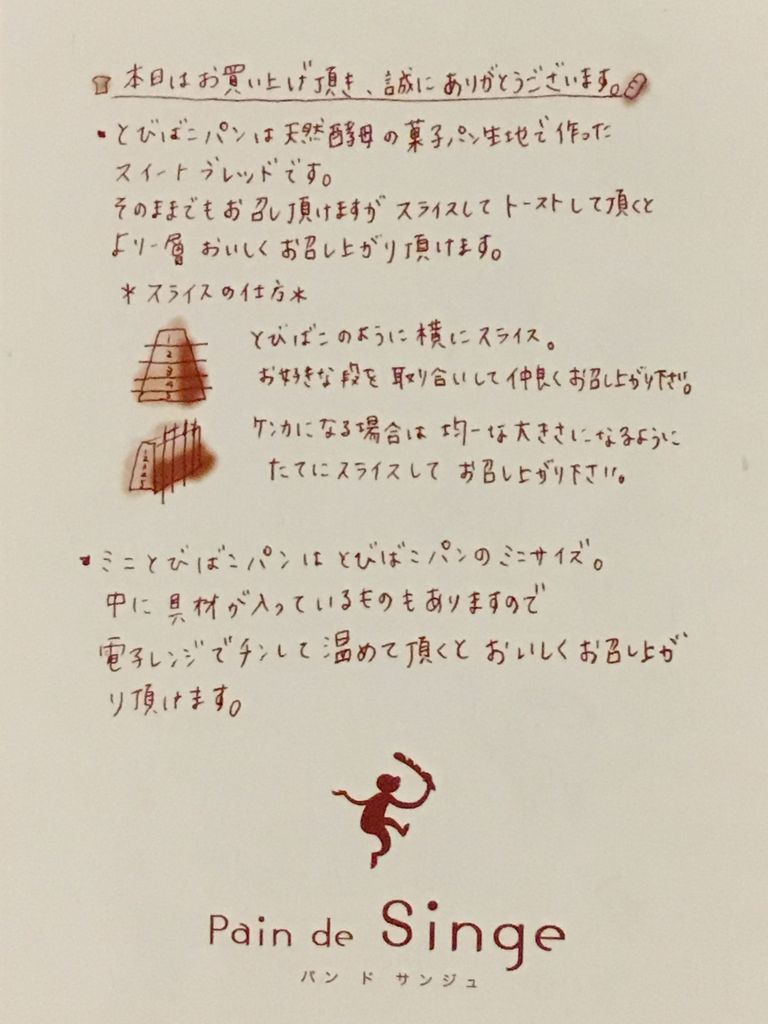 本日はお買い上げ頂き、誠にありがとうございます。
・とびばこパンは天然酵母の菓子パン生地で作った
スイートブレッドです。
そのままでもお召し頂けますがスライスしてトーストして頂くと
より一層おいしくお召し上がり頂けます。
＊スライスの仕方＊
1
2
3
4
5
とびばこのように横にスライス。
お好きな段を取り合いして仲良くお召し上がり下さい。
1
2
3
4
5
ケンカになる場合は均一な大きさになるように
たてにスライスしてお召し上がり下さい。
・ミニとびばこパンはとびばこパンのミニサイズ。
中に具材が入っているものもありますので
電子レンジでチンして温めて頂くとおいしくお召し上が
り頂けます。
Pain de Singe
パン ド サンジュ